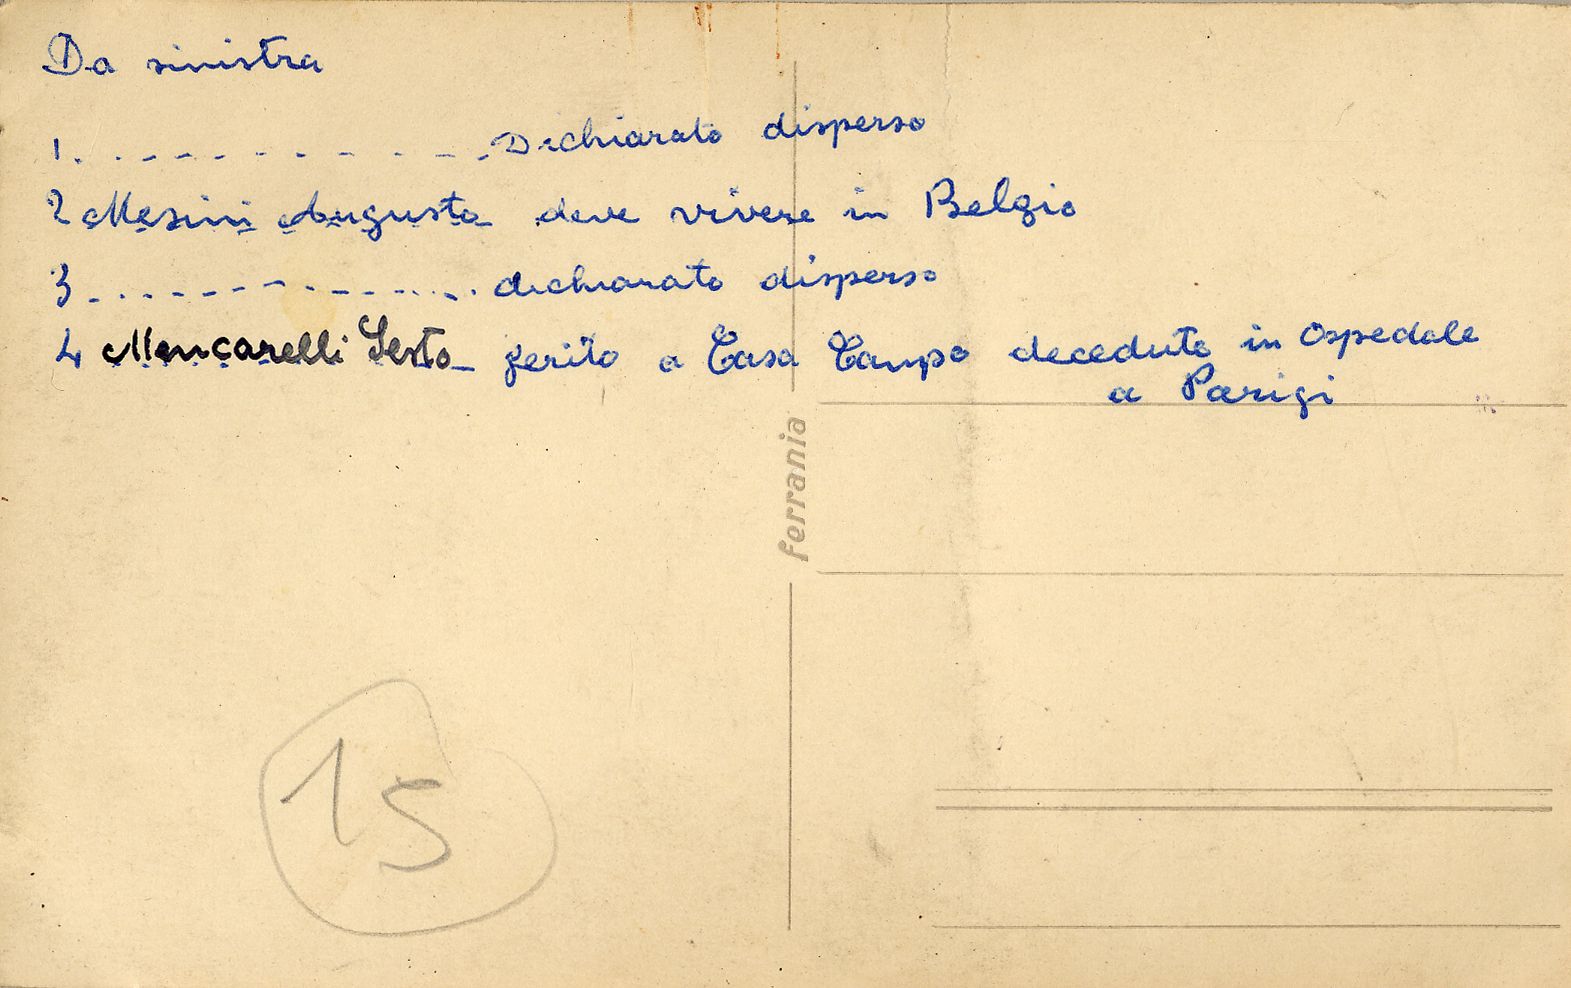 Da sinistra
1. - - - - - - - - - - - Dichiarato disperso
2 Masini Augusto deve vivere in Belgio
3 - - - - - - - - - - - - dichiarato disperso
4 Mencarelli Sesto ferito a Casa Campo deceduto in Ospedale
a Parigi
ferrania
15